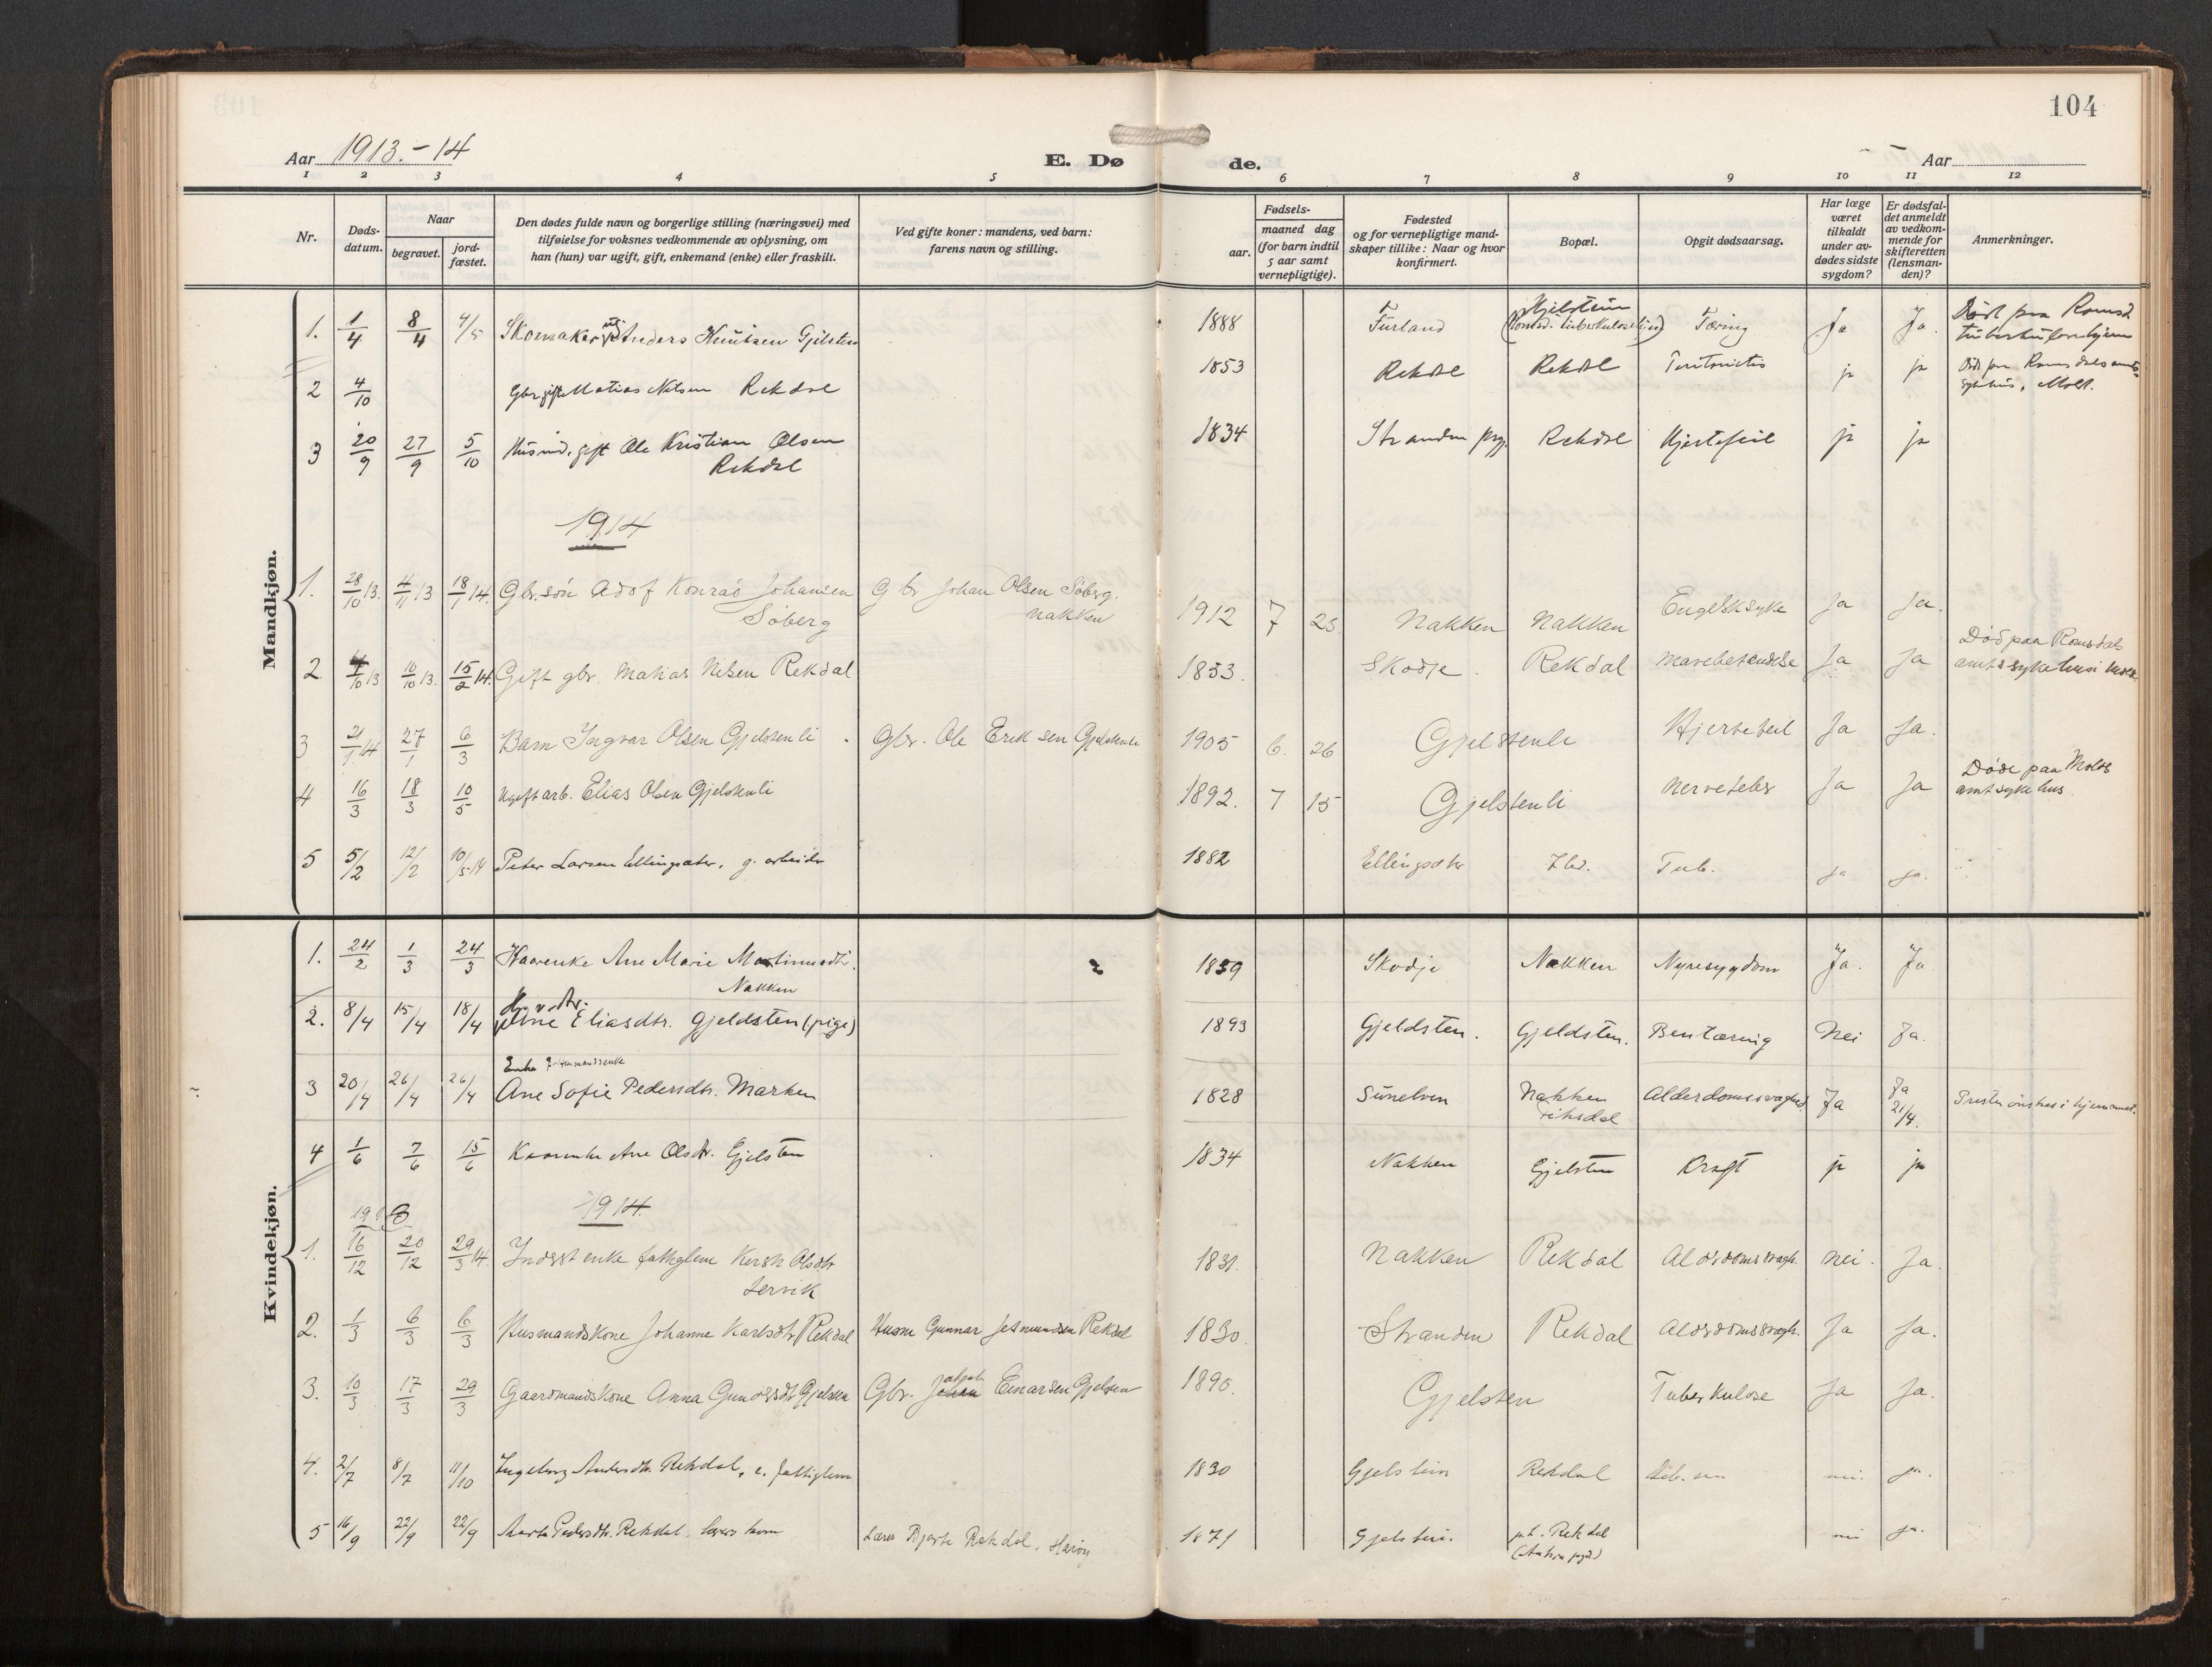 104
Aar 1913.-14
E. Dø de.
Aar
1 2 3 4 5 6 7 8 9 10 11 12
Nr.
Døds-datum.
Naar
begravet.
jord-fæstet.
Den dødes fulde navn og borgerlige stilling (næringsvei) med
tilføielse for voksnes vedkommende av oplysning, om
han (hun) var ugift, gift, enkemand (enke) eller fraskilt.
Ved gifte koner: mandens, ved barn:
farens navn og stilling.
Fødsels-
aar.
maaned dag
(for barn indtil
5 aar samt
vernepligtige).
Fødested
og for vernepligtige mand-
skaper tillike: Naar og hvor
konfirmert.
Bopæl.
Opgit dødsaarsag.
Har læge
været
tilkaldt
under av-
dødes sidste
sygdom?
Er dødsfal-
det anmeldt
av vedkom-
mende for
skifteretten
(lensman-
den)?
Anmerkninger.
Mandkjøn.
1. 1/4 8/4 4/5 Skomaker ug. Anders Knutsen Gjelsten 1888 Furland Gjelstein Tæring Ja Ja. Død paa Romsd.
tuberkulosehjem
2 4/10 Gbr gift Matias Nilsen Rekdal 1853 Rekdal Rekdal ja ja Død paa Romsdals amts
sykehus, Molde.
3 20/9 27/9 5/10 Husmd. gift Ole Kristian Olsen
Rekdal 1834 Stranden prg. Rekdal Hjertefeil ja ja
1914
1. 28/10 13. 4/11 13 18/1 14. Gbr.søn Adof Konrad Johansen
Søberg Gbr Johan Olsen Søberg.
Nakken 1912 7 23 Nakken Nakken Engelsksyke Ja Ja.
2. 4/10 13 10/10 13. 15/2 14. Gift gbr. Matias Nelsen Rekdal 1853. Skodje. Rekdal Mavebetendelse Ja Ja Død paa Romsdals
amts sykehus i Molde
3 21/1 14 27/1 6/3 Barn Ingvar Olsen Gjelstenli Gbr. Ole Eriksen Gjelstenli 1905 6. 26 Gjelstenli Hjertefeil Ja Ja.
4 16/3 18/3 10/5 Ugift arb. Elias Olsen Gjelstenli 1892. 7 15 Gjelstenli Nervefeber Ja Ja Døde paa Molde
amtsykehus.
5 5/2 12/2 10/5-14 Peter Larsen Ellingsæter, g. arbeider 1882 Ellingsæter Ibd. Tub. ja ja.
Kvindekjøn.
1. 24/2 1/3 24/3 Kaarenke Ane Marie Martinusdtr.
Nakken 1839 Skodje Nakken Nyresygdom Ja. Ja
2. 8/4 15/4 18/4 Ane Eliasdtr. Gjeldsten (pige) 1893 Gjeldsten. Gjeldsten. Bentæring Nei Ja.
3 20/4 26/4 26/4 Enke
Ane Sofie Pedersdtr. Marken 1828 Sunelven Nakken
Alderdomssvaghed. Ja Ja
21/4. Presten ønskes i hjemmet.
4 1/6 7/6 15/6 Kaarenke Ane Olsdtr. Gjelsten 1834 Nakken Gjelsten Kræft ja ja
1914.
1. 16/12 20/12 29/3 14. Indsst enke fatiglem Olsdtr
1831. Nakken Rekdal Aldrdomssvagh. Nei. Ja.
2. 1/3 6/3 6/3 Husmandskone Johanne Karlsdtr Rekdal Husm Gunnar Jetmundsen Rekdal 1830. Stranden Rekdal Aldrdomssvagh. Ja Ja.
3. 10/3 17/3 29/3 Gaardmandskone Anna Gundersdtr Gjelsten Gbr. Einarsen Gjelsten 1890. Gjelsten Tuberkulose Ja Ja.
4. 2/7 8/7 11/10 Ingeborg Andersdtr. Rekdal, e. fattiglem 1830 Gjelstein Rekdal nei ja.
5 16/9 22/9 22/9 Marta Pedersdtr. Rekdal. lærers kone Lærer Bjarte Rekdal. Harøy 1871 Gjelstein. p.t. Rekdal
nei ja.